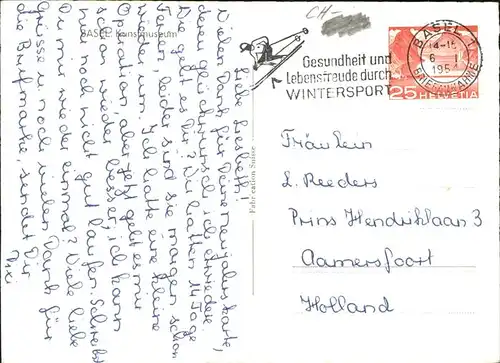 BASEL Kunstmuseum
Liebe Liesbeth!
Vielen Dank für Deine Neujahrskarte,
deren Glückwunsch ich erwidere.
Wie geht es Dir? Wir hatten 14 Tage
Ferien, leider sind sie morgen schon
wieder um. Ich hatte eine kleine
Operation, aber jetzt geht es mir
schon wieder besser, ich kann
nur noch nicht gut laufen. Schreibst
Du mir wieder einmal? Viele liebe
Grüsse u. noch vielen Dank für
die Briefmarke, sendet Dir
Fabrication Suisse
CH-
Gesundheit und
Lebensfreude durch
WINTERSPORT
BASEL 1
BRIEFANNAHME
25 HELVETIA
Fräulein
L. Reeders
Prins Hendriklaan 3
Aamersfoort
Holland